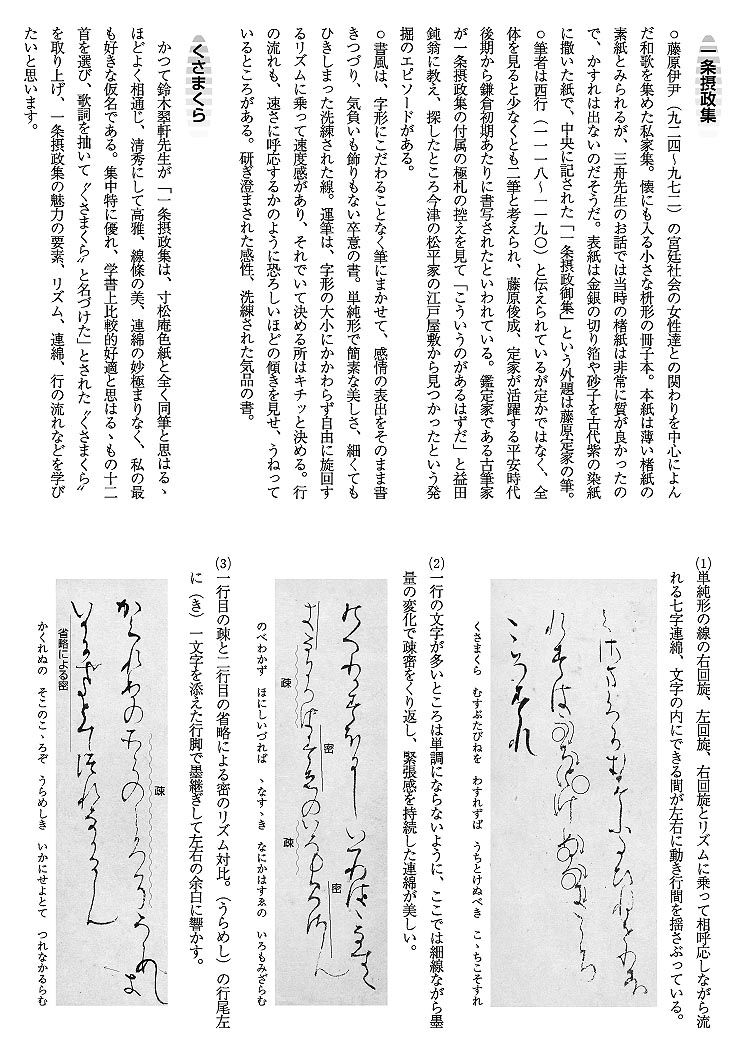 一条摂政集
○藤原伊尹（九二四〜九七二）の宮廷社会の女性達との関わりを中心によん
だ和歌を集めた私家集。懐にも入る小さな枡形の冊子本。本紙は薄い楮紙の
素紙とみられるが、三舟先生のお話では当時の楮紙は非常に質が良かったの
で、かすれは出ないのだそうだ。表紙は金銀の切り箔や砂子を古代紫の染紙
に撒いた紙で、中央に記された「一条摂政御集」という外題は藤原定家の筆。
○筆者は西行（一一一八〜一一九〇）と伝えられているが定かではなく、全
体を見ると少なくとも二筆と考えられ、藤原俊成、定家が活躍する平安時代
後期から鎌倉初期あたりに書写されたといわれている。鑑定家である古筆家
が一条摂政集の付属の極札の控えを見て「こういうのがあるはずだ」と益田
鈍翁に教え、探したところ今津の松平家の江戸屋敷から見つかったという発
掘のエピソードがある。
○書風は、字形にこだわることなく筆にまかせて、感情の表出をそのまま書
きつづり、気負いも飾りもない卒意の書。単純形で簡素な美しさ、細くても
ひきしまった洗練された線。運筆は、字形の大小にかかわらず自由に旋回す
るリズムに乗って速度感があり、それでいて決める所はキチッと決める。行
の流れも、速さに呼応するかのように恐ろしいほどの傾きを見せ、うねって
いるところがある。研ぎ澄まされた感性、洗練された気品の書。
くさまくら
かつて鈴木翠軒先生が「一条摂政集は、寸松庵色紙と全く同筆と思はるゝ
ほどよく相通じ、清秀にして高雅、線條の美、連綿の妙極まりなく、私の最
も好きな仮名である。集中特に優れ、学書上比較的好適と思はるゝもの十二
首を選び、歌詞を抽いて〝くさまくら〟と名づけた」とされた〝くさまくら〟
を取り上げ、一条摂政集の魅力の要素、リズム、連綿、行の流れなどを学び
たいと思います。
(1)単純形の線の右回旋、左回旋、右回旋とリズムに乗って相呼応しながら流
れる七字連綿、文字の内にできる間が左右に動き行間を揺さぶっている。
くさまくら　むすぶたびねを　わすれずば　うちとけぬべき　こゝちこそすれ
(2)一行の文字が多いところは単調にならないように、ここでは細線ながら墨
量の変化で疎密をくり返し、緊張感を持続した連綿が美しい。
密
密
疎
疎
のべわかず　ほにしいづれば　ゝなすゝき　なにかはすゑの　いろもみざらむ
(3)一行目の疎と二行目の省略による密のリズム対比。（うらめし）の行尾左
に（き）一文字を添えた行脚で墨継ぎして左右の余白に響かす。
疎
省略による密
かくれぬの　そこのこゝろぞ　うらめしき　いかにせよとて　つれなかるらむ